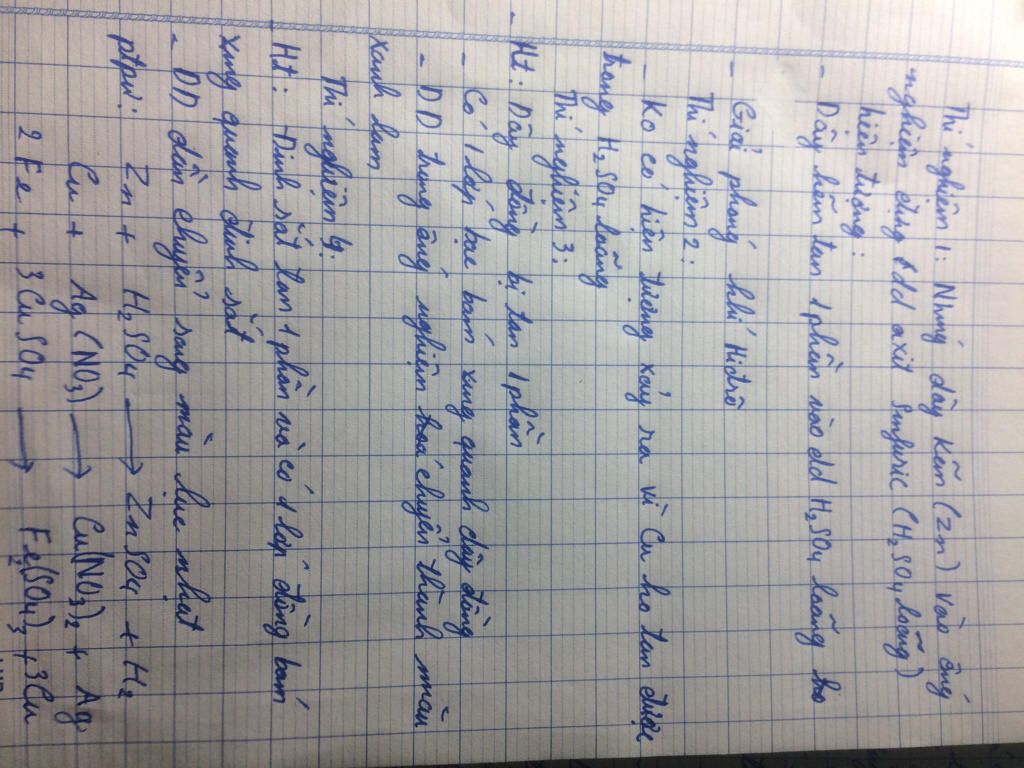 Thí nghiệm 1: Nhúng dây kẽm (Zn) vào ống
nghiệm đựng dd axit Sunfuric (H₂SO₄ loãng)
hiện tượng:
- Dây kẽm tan 1 phần vào dd H₂SO₄ loãng
- Giải phóng khí Hiđrô
Thí nghiệm 2:
- Ko có hiện tượng xảy ra vì Cu ko tan được
trong H₂SO₄ loãng
Thí nghiệm 3:
Ht: Dây đồng bị tan 1 phần
- Có 1 lớp bạc bám xung quanh dây đồng
- DD trong ống nghiệm hoá chuyển thành màu
xanh lam
Thí nghiệm 4:
Ht: - Đinh sắt tan 1 phần và có 1 lớp đồng bám
xung quanh đinh sắt
- DD dần chuyển sang màu lục nhạt
ptpư: Zn + H₂SO₄ → ZnSO₄ + H₂
Cu + Ag(NO₃) → Cu(NO₃)₂ + Ag
2Fe + 3CuSO₄ → Fe₂(SO₄)₃ + 3Cu